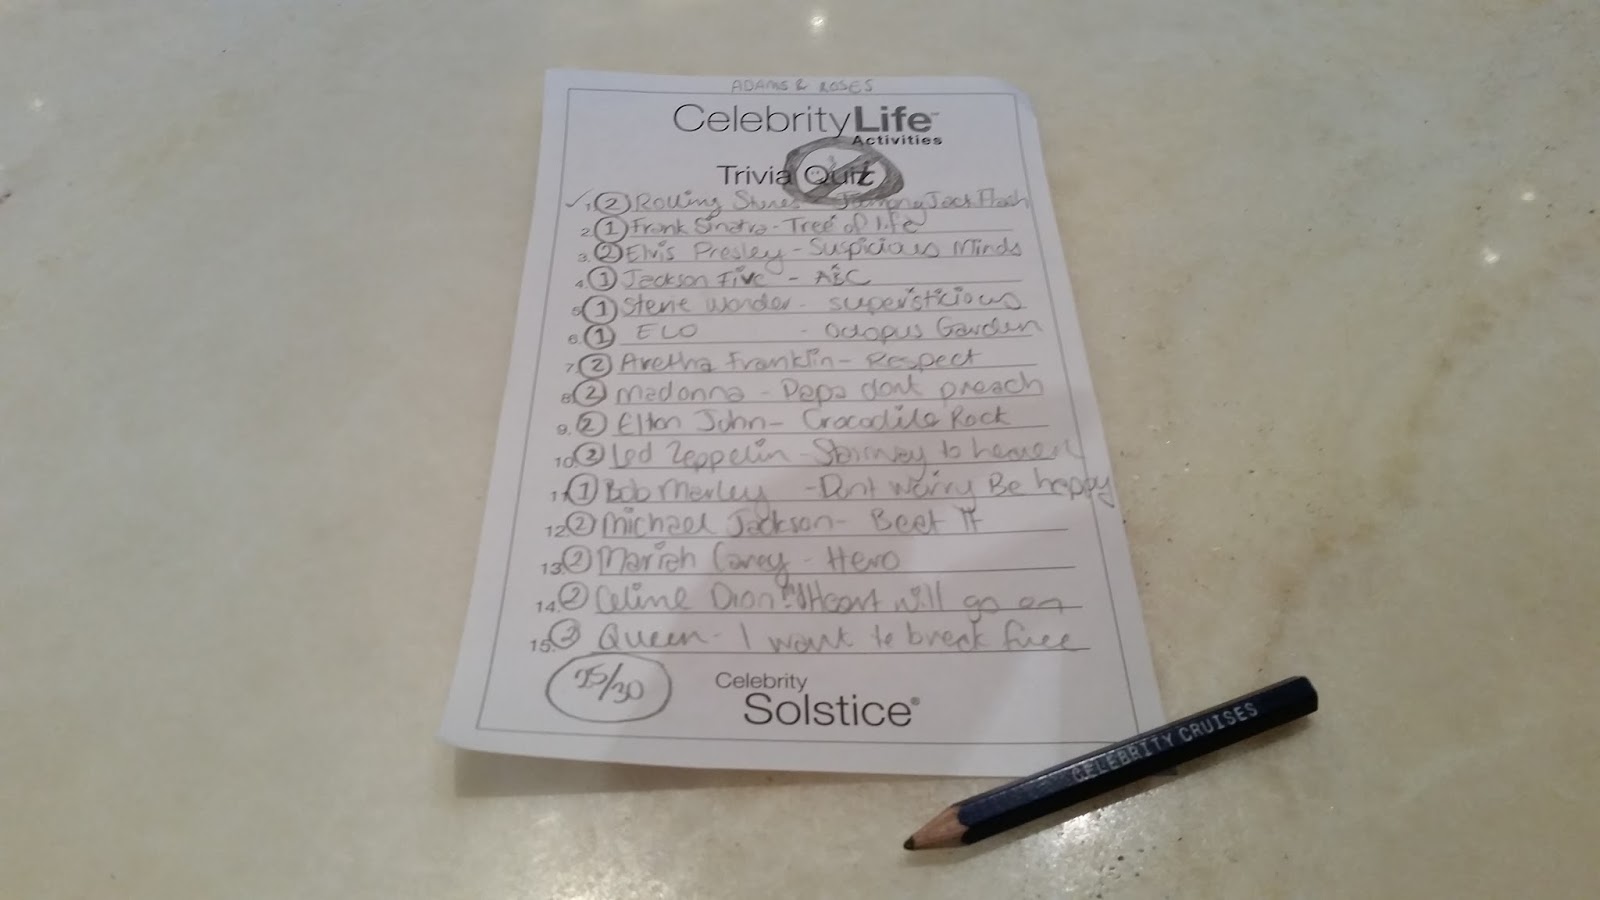 ADAMS & ROSES
CelebrityLife™
Activities
Trivia Quiz
✓ 1. 2 Rolling Stones - Jumping Jack Flash
2. 1 Frank Sinatra - Tree of life
3. 2 Elvis Presley - Suspicious Minds
4. 1 Jackson Five - ABC
5. 1 Stevie Wonder - supersticious
6. 1 ELO - Octopus Garden
7. 2 Aretha Franklin - Respect
8. 2 Madonna - Papa dont preach
9. 2 Elton John - Crocodile Rock
10. 2 Led Zeppelin - Stairway to heaven
11. 1 Bob Marley - Dont Worry Be happy
12. 2 Michael Jackson - Beet It
13. 2 Mariah Carey - Hero
14. 2 Celine Dion Heart will go on
15. 2 Queen - I want to break free
25/30
Celebrity
Solstice®
CELEBRITY CRUISES